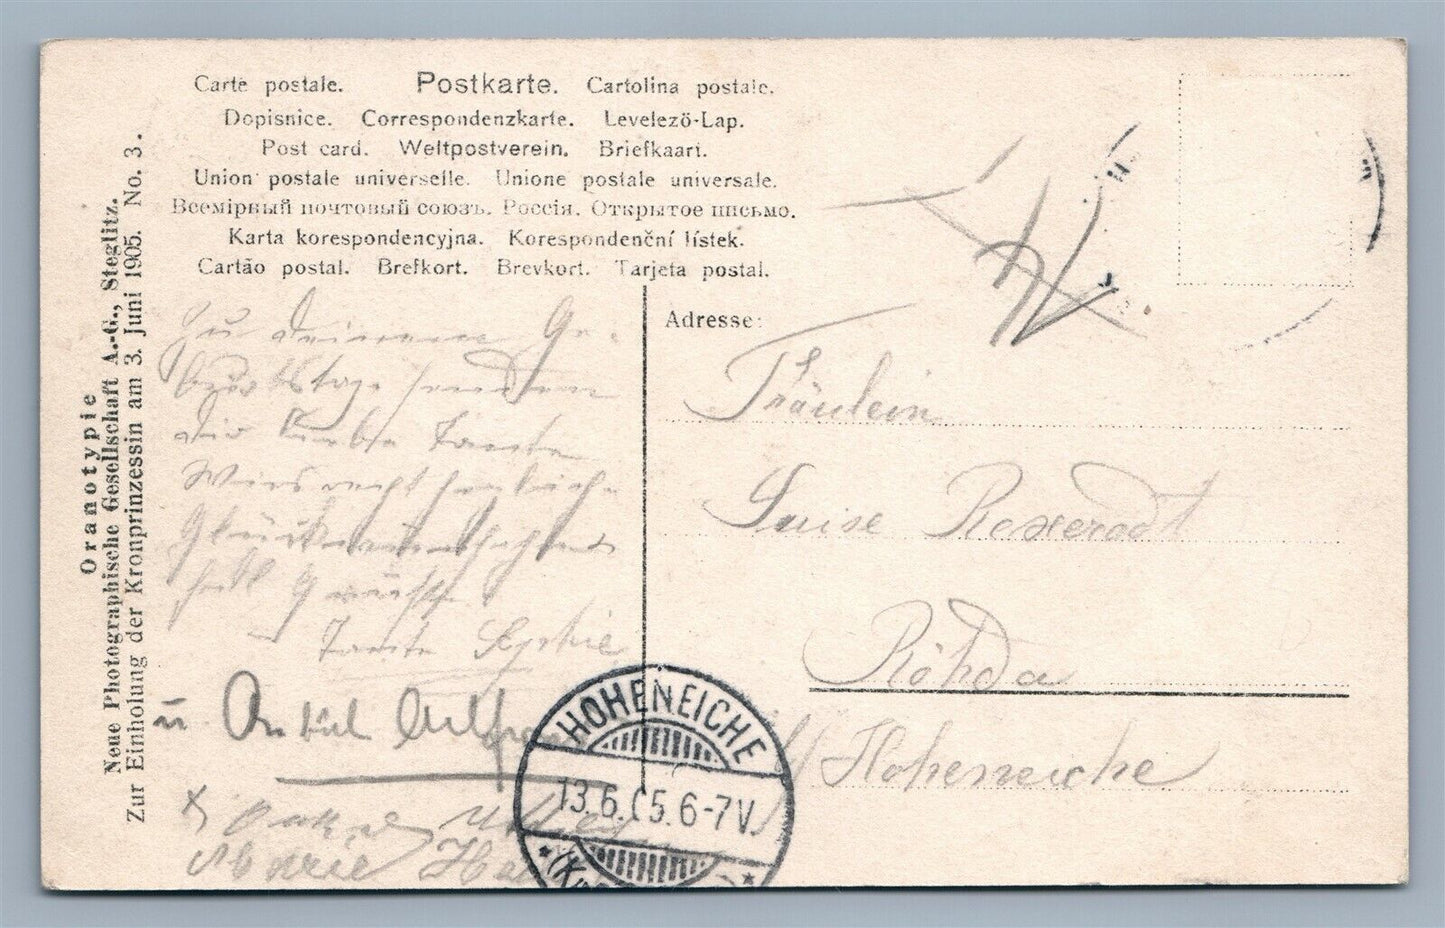 Carte postale. Postkarte. Cartolina postale.
Dopisnice. Correspondenzkarte. Levelező-Lap.
Post card. Weltpostverein. Briefkaart.
Union postale universelle. Unione postale universale.
Всемірный почтовый союзъ. Россія. Открытое письмо.
Karta korespondencyjna. Korespondenční lístek.
Cartão postal. Brefkort. Brevkort. Tarjeta postal.
Oranotypie
Neue Photographische Gesellschaft A.-G., Steglitz.
Zur Einholung der Kronprinzessin am 3. Juni 1905. No. 3.
Zu deinem Ge-
burtstage senden
dir Tante
recht herzliche
Glück
Tante Sophie
u. Onkel
Marie
Adresse:
Fräulein
Luise Rexerodt
Röhda
b/ Hoheneiche
HOHENEICHE
13.6.05.6-7V.